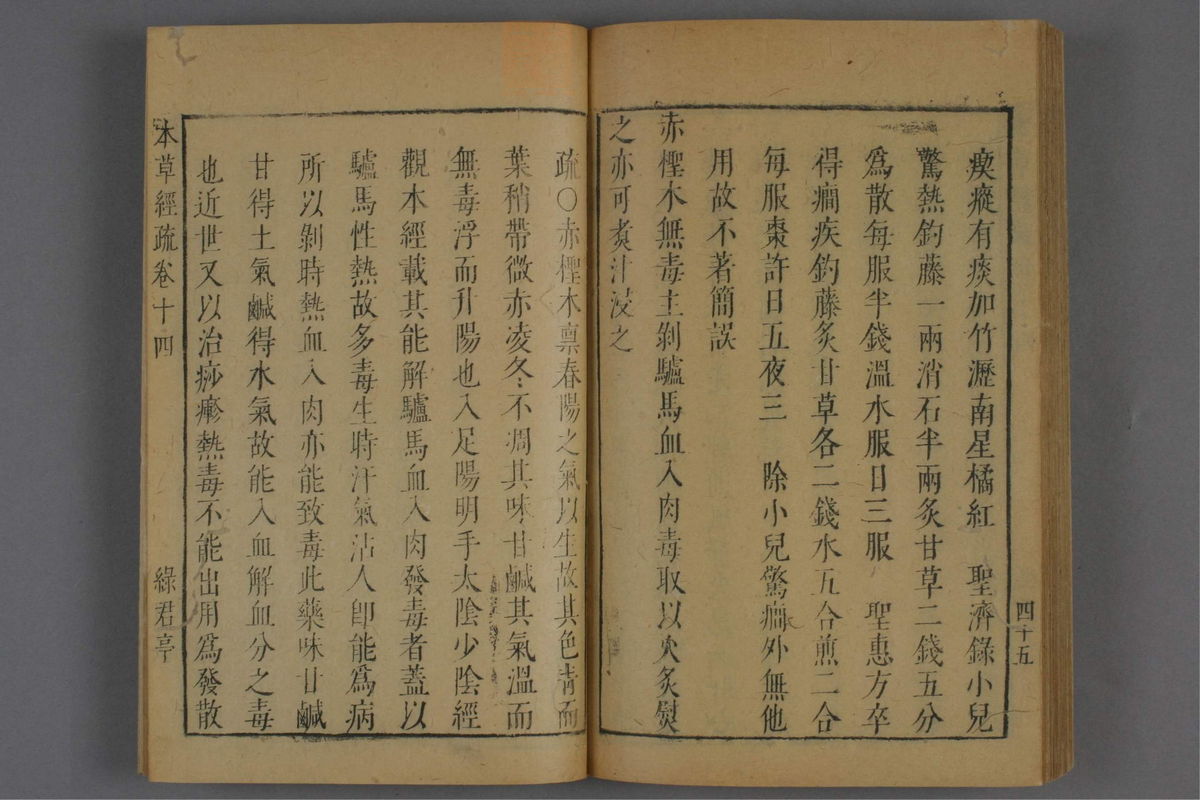 瘈瘲有痰加竹瀝南星橘紅　聖濟錄小兒
驚熱釣藤一兩消石半兩炙甘草二錢五分
爲散每服半錢溫水服日三服　聖惠方卒
得癎疾釣藤炙甘草各二錢水五合煎二合
每服棗許日五夜三　除小兒驚癎外無他
用故不著簡誤
赤檉木無毒主剝驢馬血入肉毒取以火炙熨
之亦可煮汁浸之
四十五
疏〇赤檉木禀春陽之氣以生故其色青而
葉稍帶微赤凌冬不凋其味甘鹹其氣溫而
無毒浮而升陽也入足陽明手太陰少陰經
觀本經載其能解驢馬血入肉發毒者蓋以
驢馬性熱故多毒生時汗氣沾人卽能爲病
所以剝時熱血入肉亦能致毒此藥味甘鹹
甘得土氣鹹得水氣故能入血解血分之毒
也近世又以治痧瘮熱毒不能出用爲發散
本草經疏卷十四　綠君亭